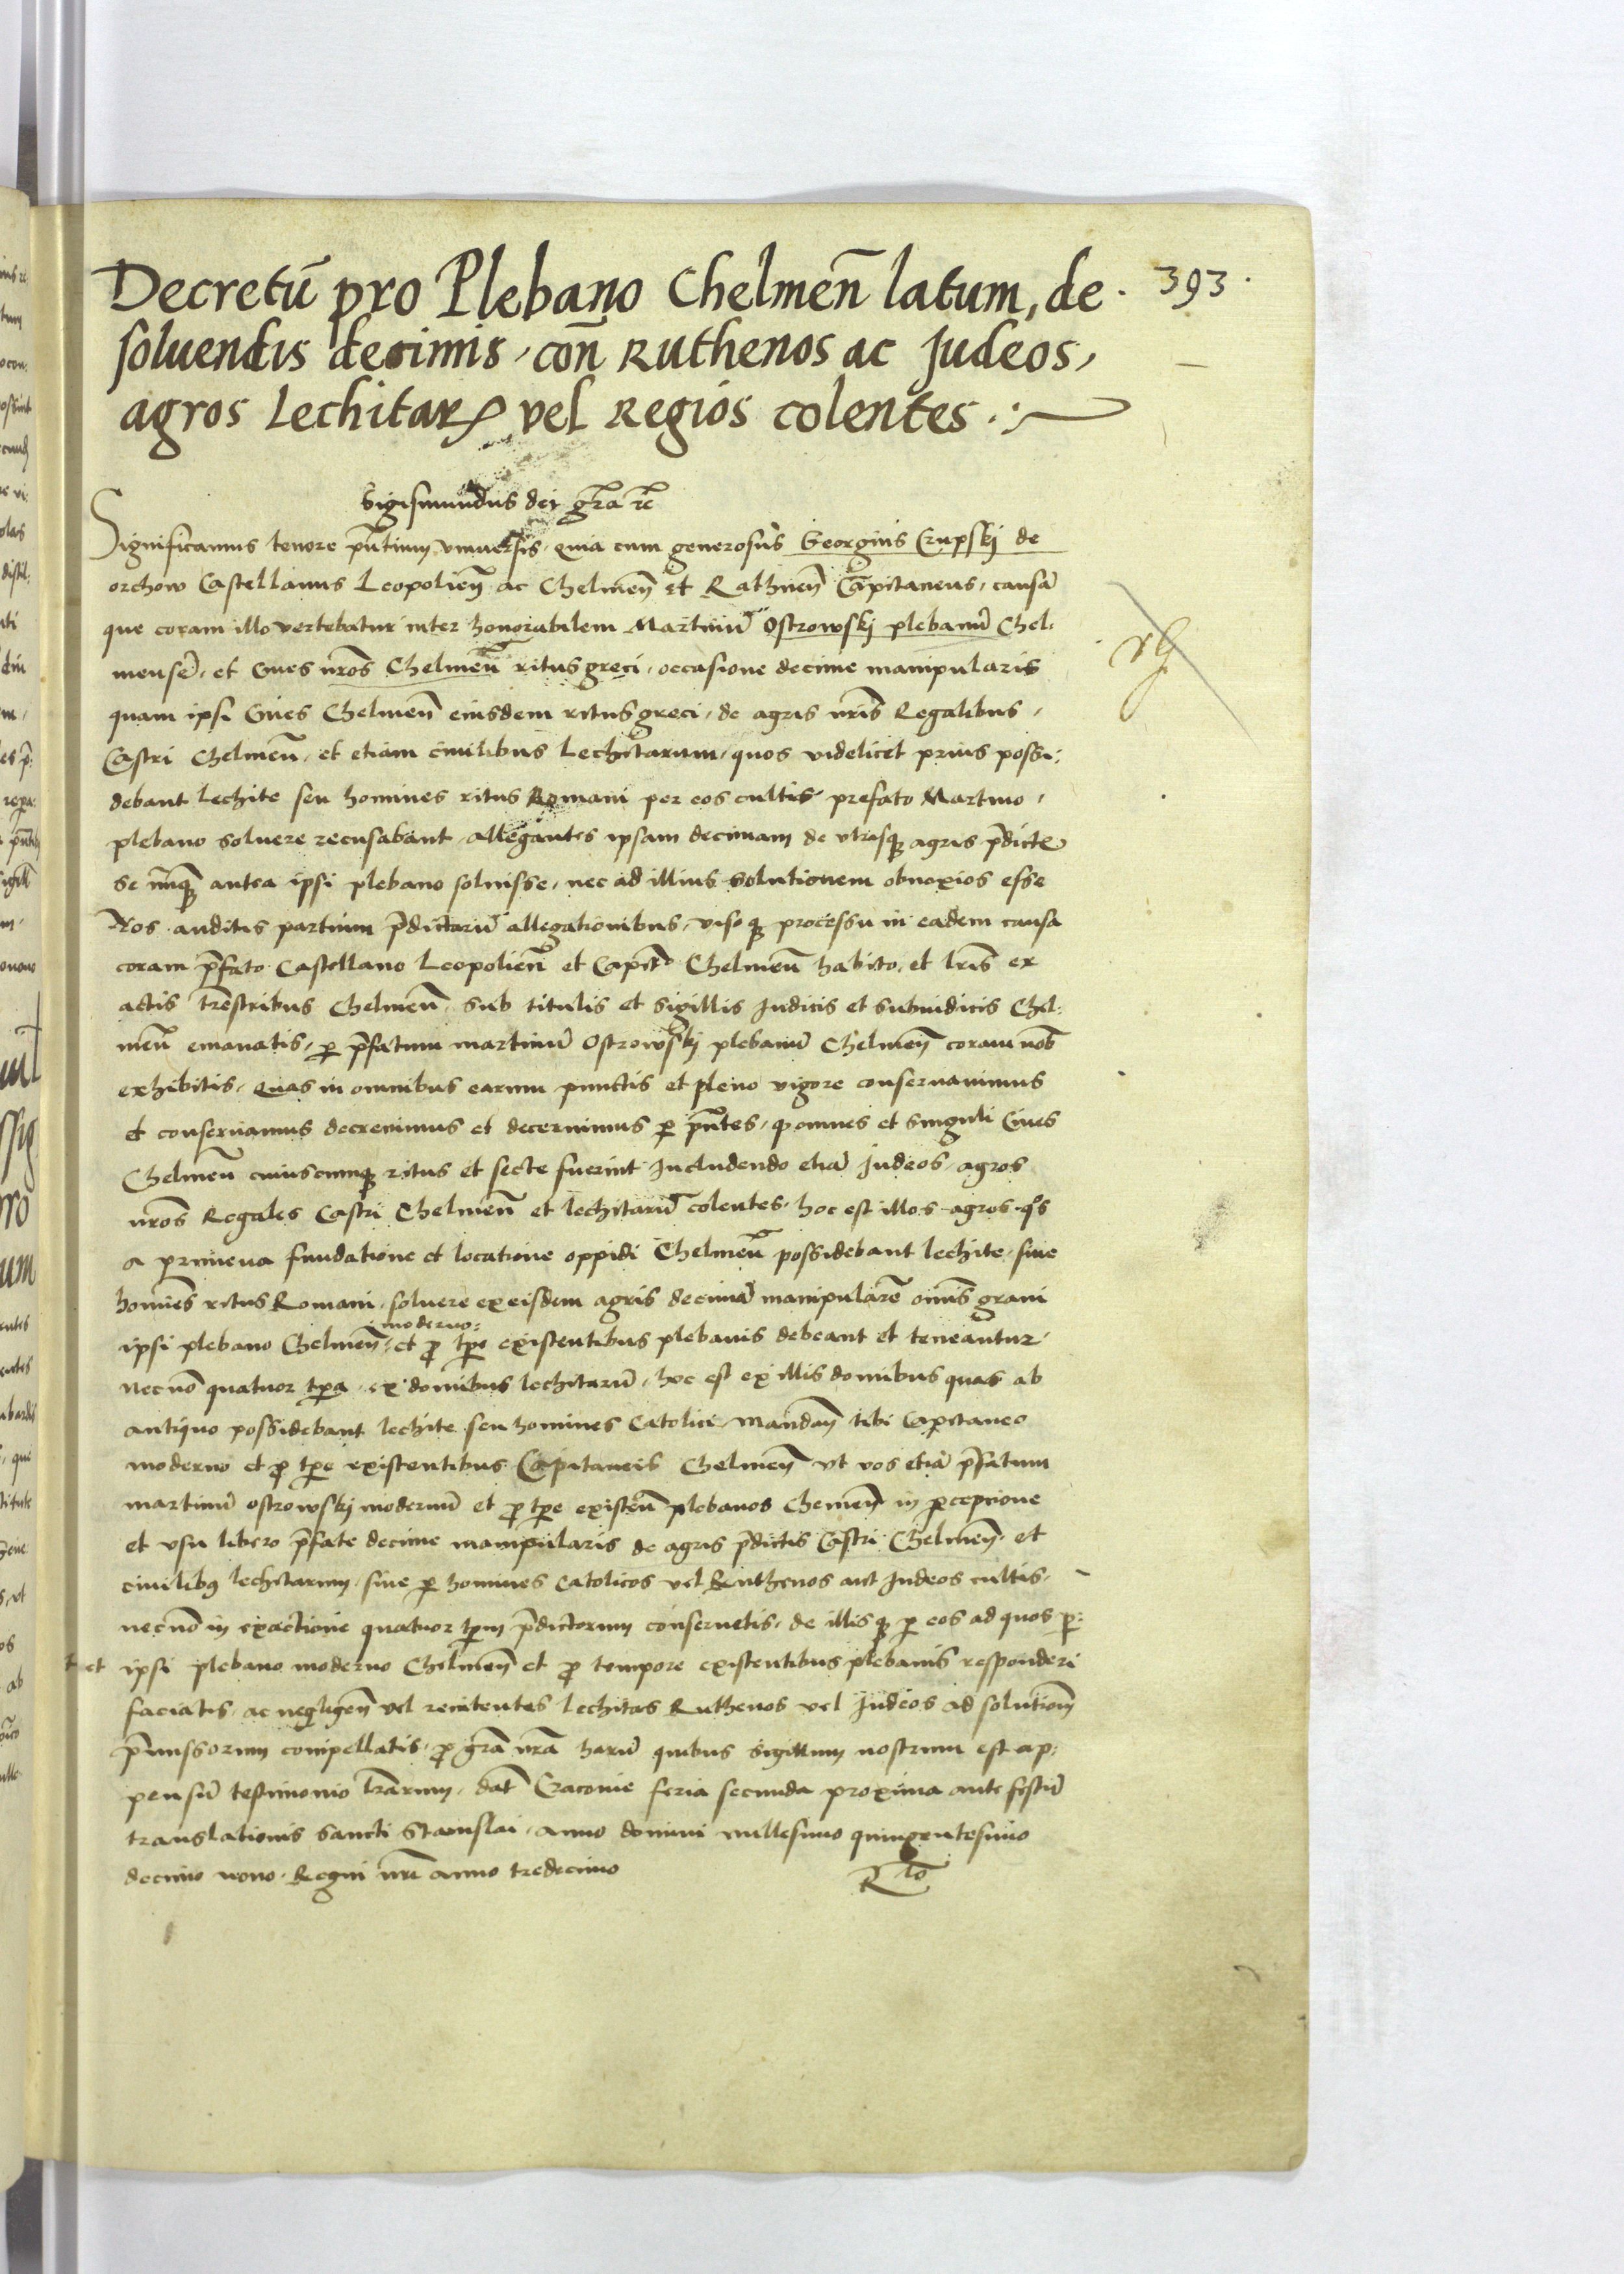 Decretū pro Plebano Chelmeñ latum, de · 393 ·
soluendis decimis, coñ Ruthenos ac Judeos,
agros Lechitaꝝ vel Regios colentes ·:
Sigismundus dei gr̃a rc̃
Significamus tenore pñtium vniuersis, quia cum generosus Georgius Crupskj de
orchow Castellanus Leopolieñ ac Chelmeñ et Rathneñ Capitaneus, causā
que coram illo vertebatur inter honorabilem Martinū Ostrowskj plebanū Chel:
mensē, et Ciues nr̃os Chelmeñ ritus greci, occasione decime manipularis
quam ipsi Ciues Chelmeñ eiusdem ritus greci, de agris nr̃is Regalibus,
Castri Chelmeñ, et etiam ciuilibus Lechitarum, quos videlicet prius possi:
debant Lechite seu homines ritus Romani per eos cultis prefato Martino,
plebano soluere recusabant, allegantes ipsam decimam de vtrisqꝫ agris p̃dicte
se nūqꝫ antea ipsi plebano soluisse, nec ad illius solutionem obnoxios esse
Nos auditis partium p̃dictarū allegationibus, visoqꝫ processu in eadem causa
coram p̃fato Castellano Leopolieñ et Capitᵒ Chelmeñ habito, et lr̃is ex
actis tr̃estribus Chelmeñ, sub titulis et sigillis Judicis et subiudicis Chel:
meñ emanatis, ꝑ p̃fatum martinū Ostrowskj plebanū Chelmeñ coram nob̃
exhibitis, quas in omnibus earum punctis et pleno vigore conseruauimus
et conseruamus decreuimus et decernimus ꝑ pñtes, ꝙ omnes et singuli Ciues
Chelmeñ cuiuscumqꝫ ritus et secte fuerint includendo etiā Judeos, agros
nr̃os Regales Castri Chelmeñ et lechitarū colentes, hoc est illos agros q̊s
a primeua fundatione et locatione oppidi Chelmeñ possidebant lechite, siue
homines ritus Romani, soluere ex eisdem agris decimā manipularē oīnis grani
moderno:
ipsi plebano Chelmeñ, et ꝓ tꝑe existentibus plebanis debeant et teneantur,
necnō quatuor tꝑa, ex domibus lechitarū, hoc est ex illis domibus quas ab
antiquo possidebant lechite seu homines Catolici, mandañ tibi Capitaneo
moderno et ꝓ tꝑe existentibus Capitaneis Chelmeñ vt vos etiā p̃fatum
martinū ostrowskj modernū et ꝓ tꝑe existeñ plebanos Chemeñ in ꝑcepcione
et vsu libero p̃fate decime manipularis de agris p̃dictis Castri Chelmeñ et
ciuilibꝰ lechitarum, siue ꝑ homines Catolicos vel Ruthenos aut Judeos cultis,
necnō in exactione quatuor tꝑm p̃dictorum conseruetis, de illisqꝫ ꝑ eos ad quos ꝑ:
t et ipsi plebano moderno Chelmeñ et ꝓ tempore existentibus plebanis responderi
faciatis, ac negligeñ vel renitentes lechitas Ruthenos vel Judeos ad solutiom̃
p̃missorum compellatis, ꝓ gr̃a nr̃a harū quibus sigillum nostrum est ap:
pensū testimonio lr̃arum, dat̃ Cracouie feria secunda proxima ante festū
translationis sancti Stanislai, anno domini millesimo quingentesimo
decimo nono, Regni nr̃i anno tredecimo